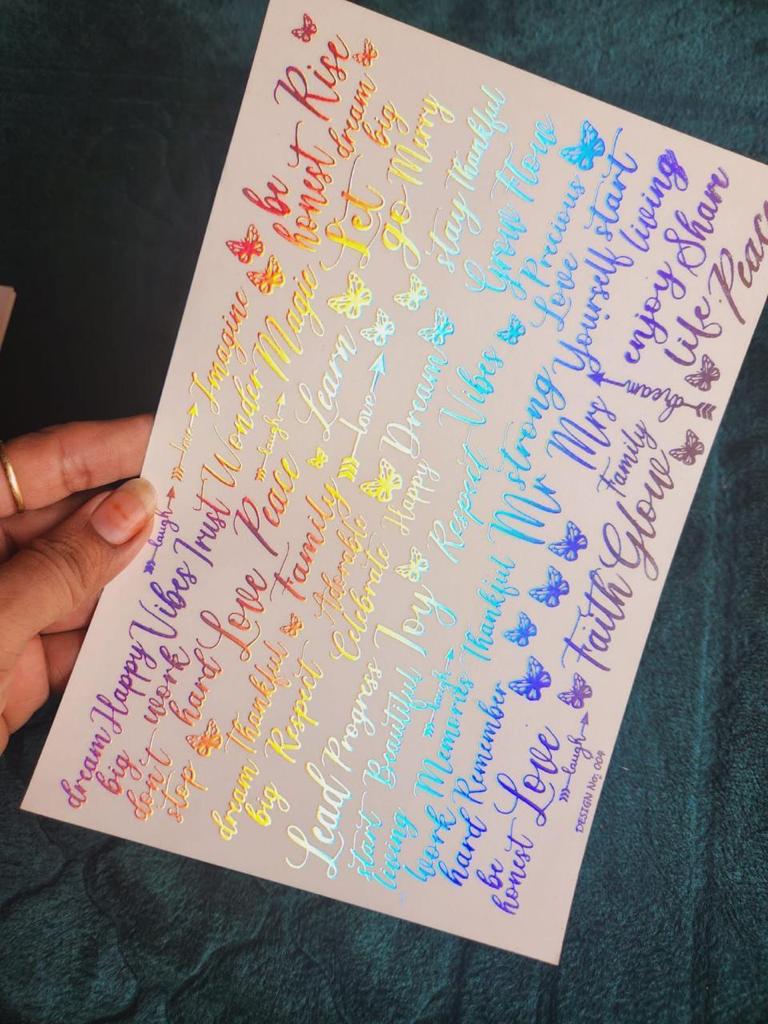 dream Happy Vibes Trust Wonder Magic Let go Merry
big
don't work hard Love Peace Learn
stop
laugh love Imagine be honest Rise
dream big
laugh
dream Thankful Family love stay Thankful
big Respect Adorable
Celebrate Happy Dream Grow Flow
Lead Progress Joy Respect Vibes Precious
start Beautiful Love Yourself start
living living
laugh
work Memories Thankful strong
hard Remember Mr Mrs enjoy Share
life Peace
dream
be honest Love Faith Glow
Family
laugh
DESIGN No; 009